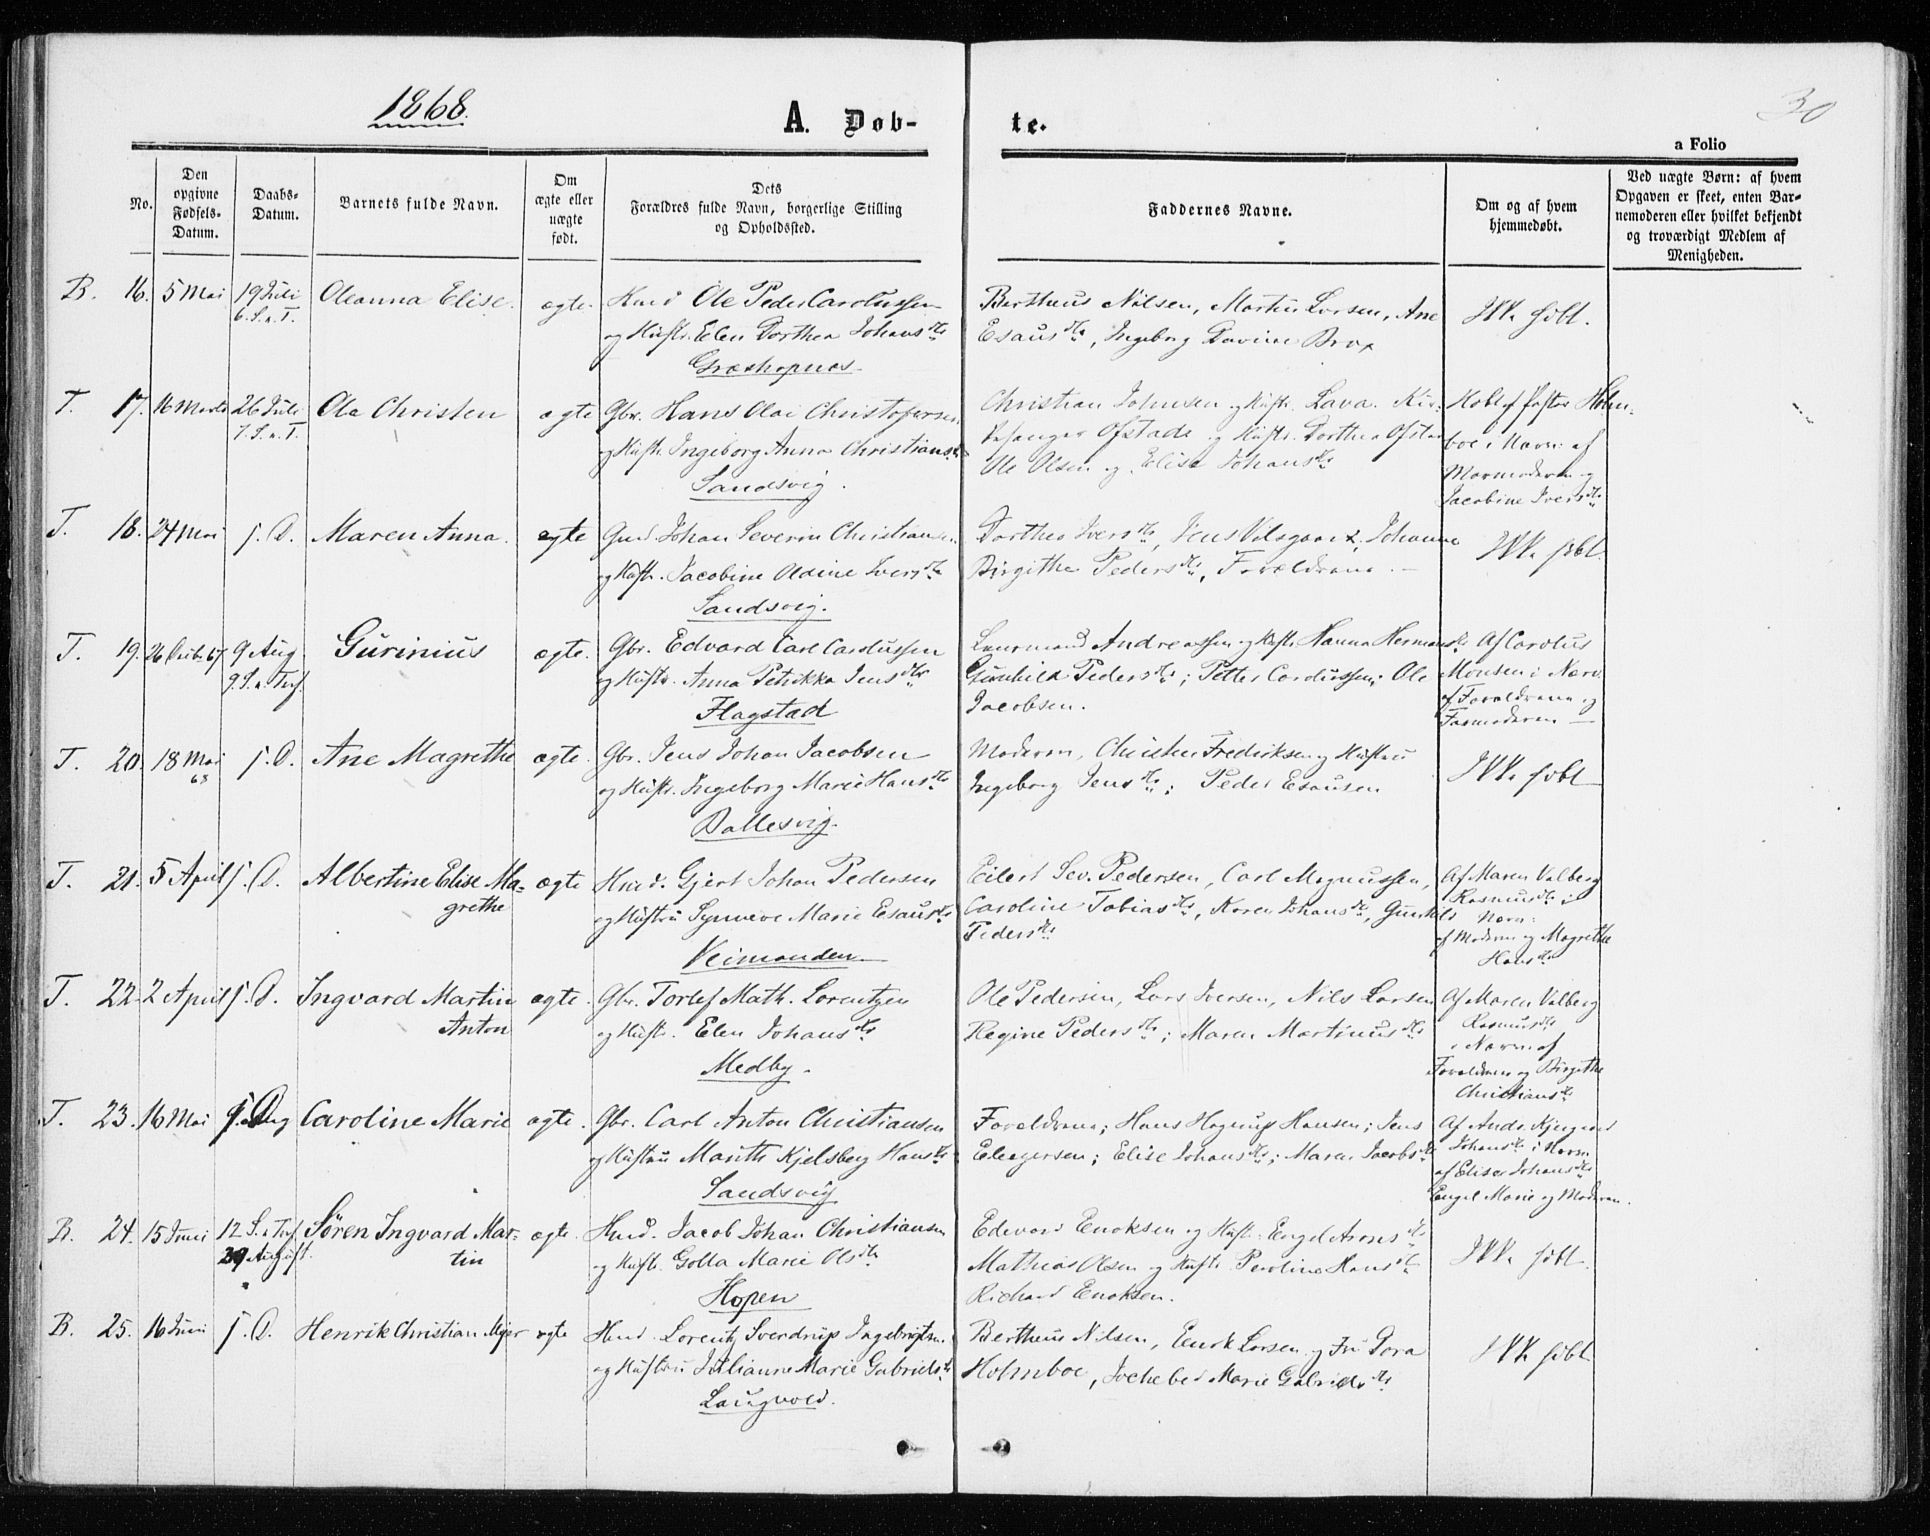 1868.
A. Døb-
te.
30
a Folio
No.
Den
opgivne
Fødsels-
Datum.
Daabs-
Datum.
Barnets fulde Navn.
Om
ægte eller
uægte
født.
Dets
Forældres fulde Navn, borgerlige Stilling
og Opholdssted.
Faddernes Navne.
Om og af hvem
hjemmedøbt.
Ved uægte Børn: af hvem
Opgaven er skeet, enten Bar-
nemoderen eller hvilket bekjendt
og troværdigt Medlem af
Menigheden.
B. 16. 5 Mai 19 Juli Oleanna Elise. ægte. Hmd Ole Peder Carolussen
6. S. e. T.
og Hustr. Elen Dorthea Johans dtr
Græshopnæs
Bertheus Nilsen, Martin Larsen, Ane
Esaus dtr, Ingeborg Davine Brox
Ikke døbt.
T. 17. 16 Marts 26 Juli Ole Christen ægte Gbr. Hans Olai Christofersen
7. S. e. T.
og Hustr. Ingeborg Anna Christians dtr
Sandsvig.
Christian Johnsen og Hustr. Lava. Kir-
kesanger Ofstads og Hustr. Dorthea Ofstad
Ole Olsen og Elisa Johans dtr
Kobl af Pastor Holm-
boe i Nærv. af
Mormoderen og
Jacobine Ivers dtr
T. 18. 24 Mai s. D. Maren Anna. ægte Gmd Johan Severin Christiansen
og Hustr. Jacobine Aldine Ivers dtr
Sandsvig.
Dorthea Ivers dtr, Jens Volsgaard, Johanna
Birgithe Peders dtr, Forældrene.
Ikke døbt.
T. 19. 26 Octbr 67 9 Aug Gurinius ægte. Gbr. Edvard Carl Carolussen
9. S. e. Tref.
og Hustr. Anna Petrikka Jens dtr
Flagstad
Laurmand Andreassen og Hustr. Hanna Hermans dtr
Gunhild Peders dtr; Petter Carolussen; Ole
Jacobsen.
Af Carolus
Monsen i Nærv.
af Forældrene og
Farmoderen
T. 20. 18 Mai s. D. Ane Magrethe ægte. Gbr. Jens Johan Jacobsen
68
og Hustr. Ingeborg Marie Hans dtr
Ballesvig.
Moderen, Christen Fredriksen og Hustru
Ingeborg Jens dtr; Peder Esausen
Ikke døbt
T. 21. 5 April s. D. Albertine Elise Ma- ægte Hmd. Gjert Johan Pedersen
grethe
og Hustru Synneve Marie Esaus dtr
Veimanden
Eilert Sev. Pedersen, Carl Magnussen,
Caroline Tobias dtr, Karen Johans dtr, Gunhild
Peders dtr
Af Maren Valberg
Rasmus dtr i
Nærv:
af Moderen og Magrethe
Hans dtr
T. 22. 2 April s. D. Ingvard Martin ægte. Gbr. Torlef Math. Lorentzen
Anton
og Hustr. Elen Johans dtr
Medby.
Ole Pedersen, Lars Iversen, Nils Larsen
Regine Peders dtr; Maren Martinus dtr
Af Maren Valberg
Rasmus dtr
i Nærv: af
Forældrene og Birgithe
Christians dtr
T. 23. 16 Mai s. D. Caroline Marie ægte. Gbr. Carl Anton Christiansen
og Hustru Marith Kjelsberg Hans dtr
Sandsvig
Forældrene; Hans Hagerup Hansen; Jens
Eleezersen; Elise Johans dtr; Maren Jacobs dtr
Johans dtr i Nærv.
af Elisa Johans dtr
Engel Marie og Moderen.
B. 24. 15 Juni 12 S. e. Tref. Søren Ingvard Mar- ægte. Hmd. Jacob Johan Christiansen
29 August. tin
og Hustr. Golla Marie Ols dtr
Hopen
Edevard Enoksen og Hustr. Engel Arons dtr
Mathias Olsen og Hustr. Peroline Hans dtr
Richard Enoksen.
Ikke døbt.
B. 25. 16 Juni s. D. Henrik Christian Mejer ægte Hmd. Lorentz Sverdrup Ingebrigtsen.
og Hustru Julianne Marie Gabriels dtr
Laugvold.
Bertheus Nilsen, Enok Larsen og Fru Dora
Holmboe, Jochebed Marie Gabriels dtr
Ikke døbt.